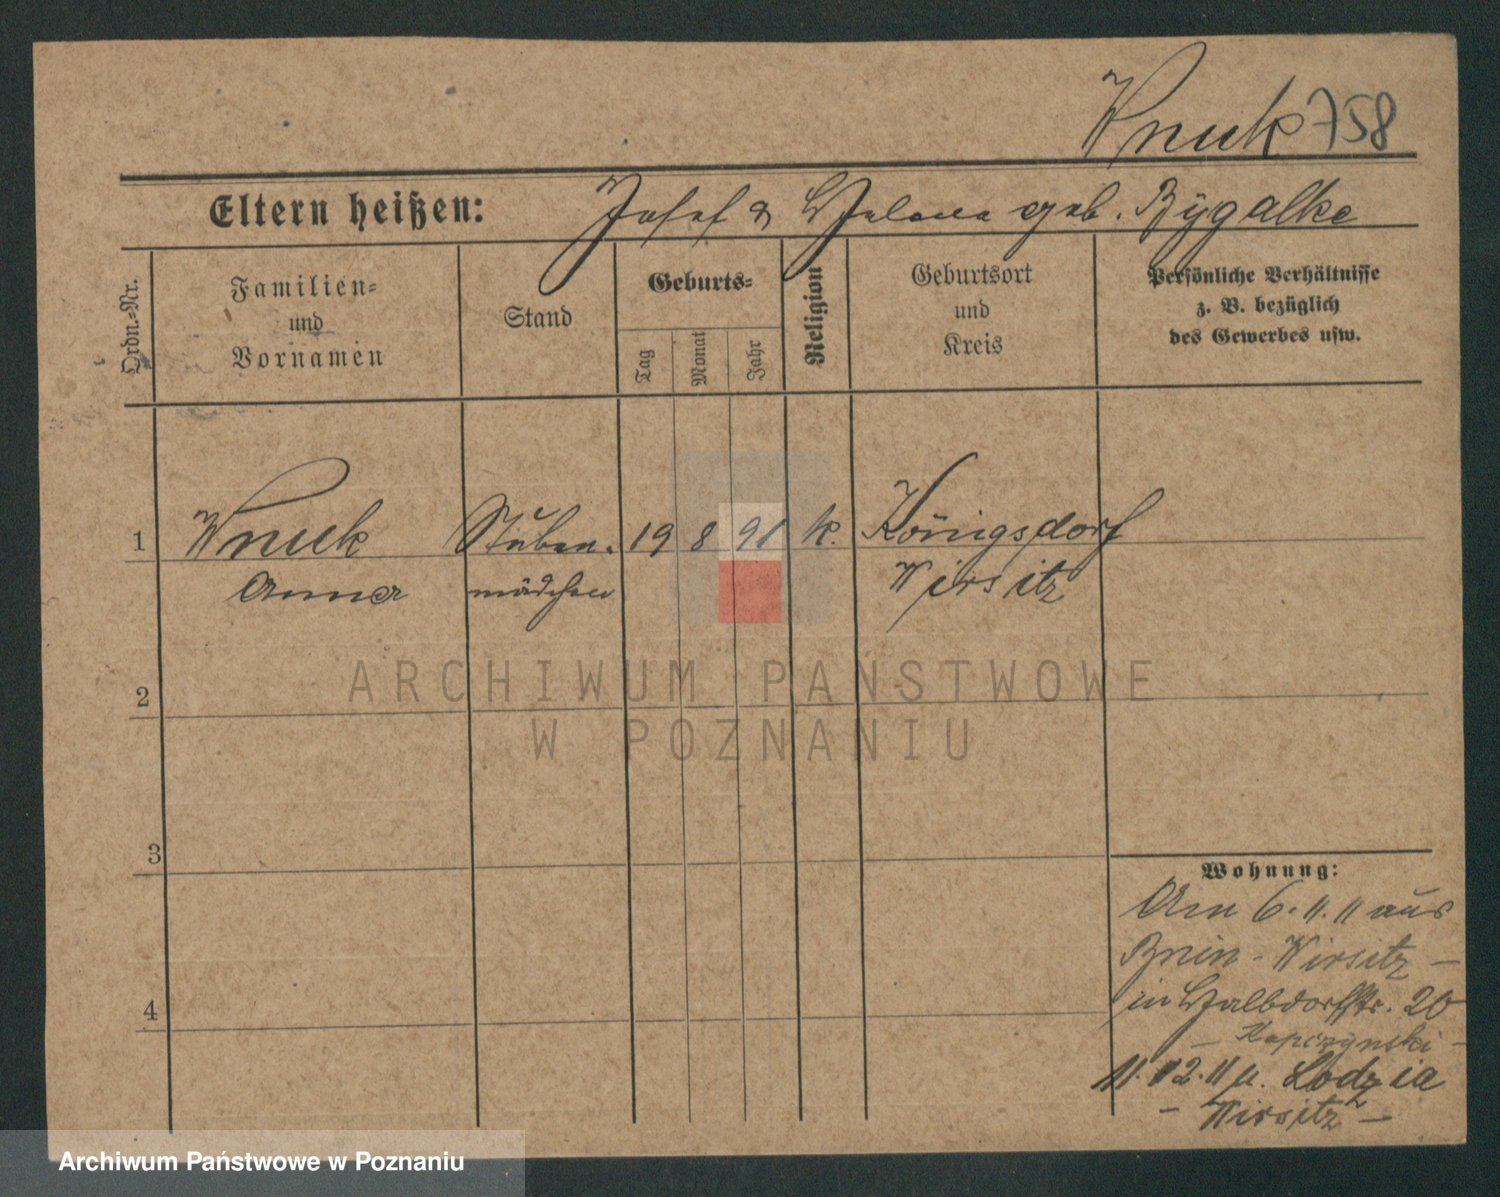 Wnuk 758
Eltern heißen: Josef & Helena geb. Rygalke
Ordn.-Nr.
Familien-
und
Vornamen
Stand
Geburts-
Tag
Monat
Jahr
Religion
Geburtsort
und
Kreis
Persönliche Verhältnisse
z. B. bezüglich
des Gewerbes usw.
1 Wnuk Stuben- 19 8 91 k. Königsdorf
Anna mädchen Wirsitz
2
3
4
Wohnung:
Am 6.11.11 aus
Bnin - Wirsitz -
in Halbdorfstr. 20
- Kapczynski -
11.12.11 n. Lodzia
- Wirsitz -
ARCHIWUM PAŃSTWOWE
W POZNANIU
Archiwum Państwowe w Poznaniu